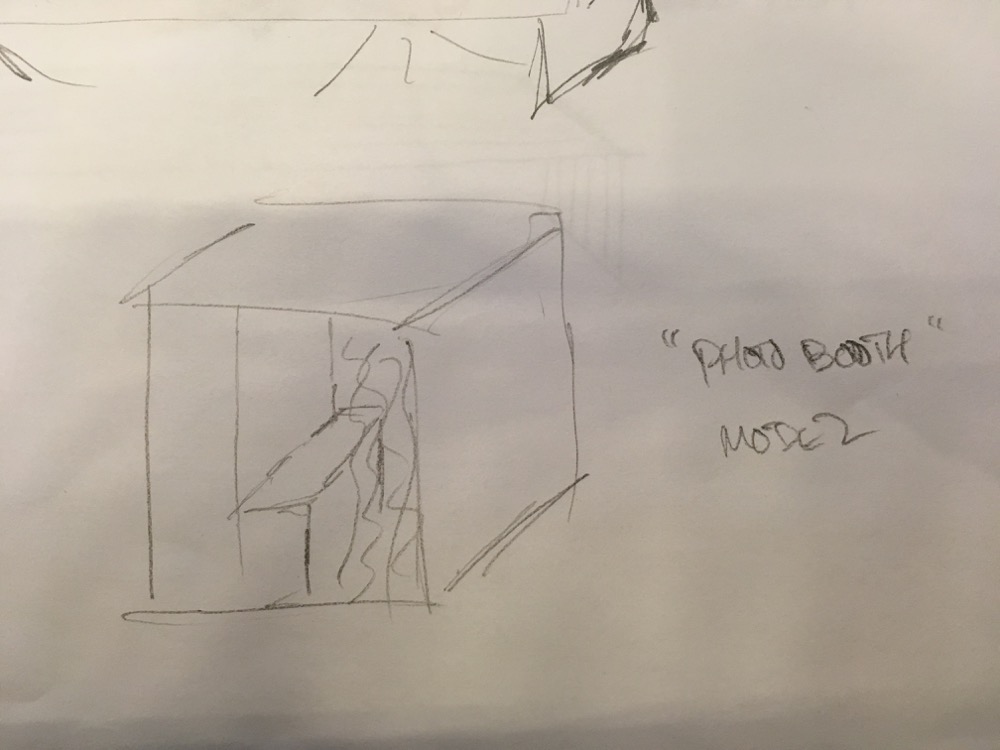 "PHOTO BOOTH"
MODEL